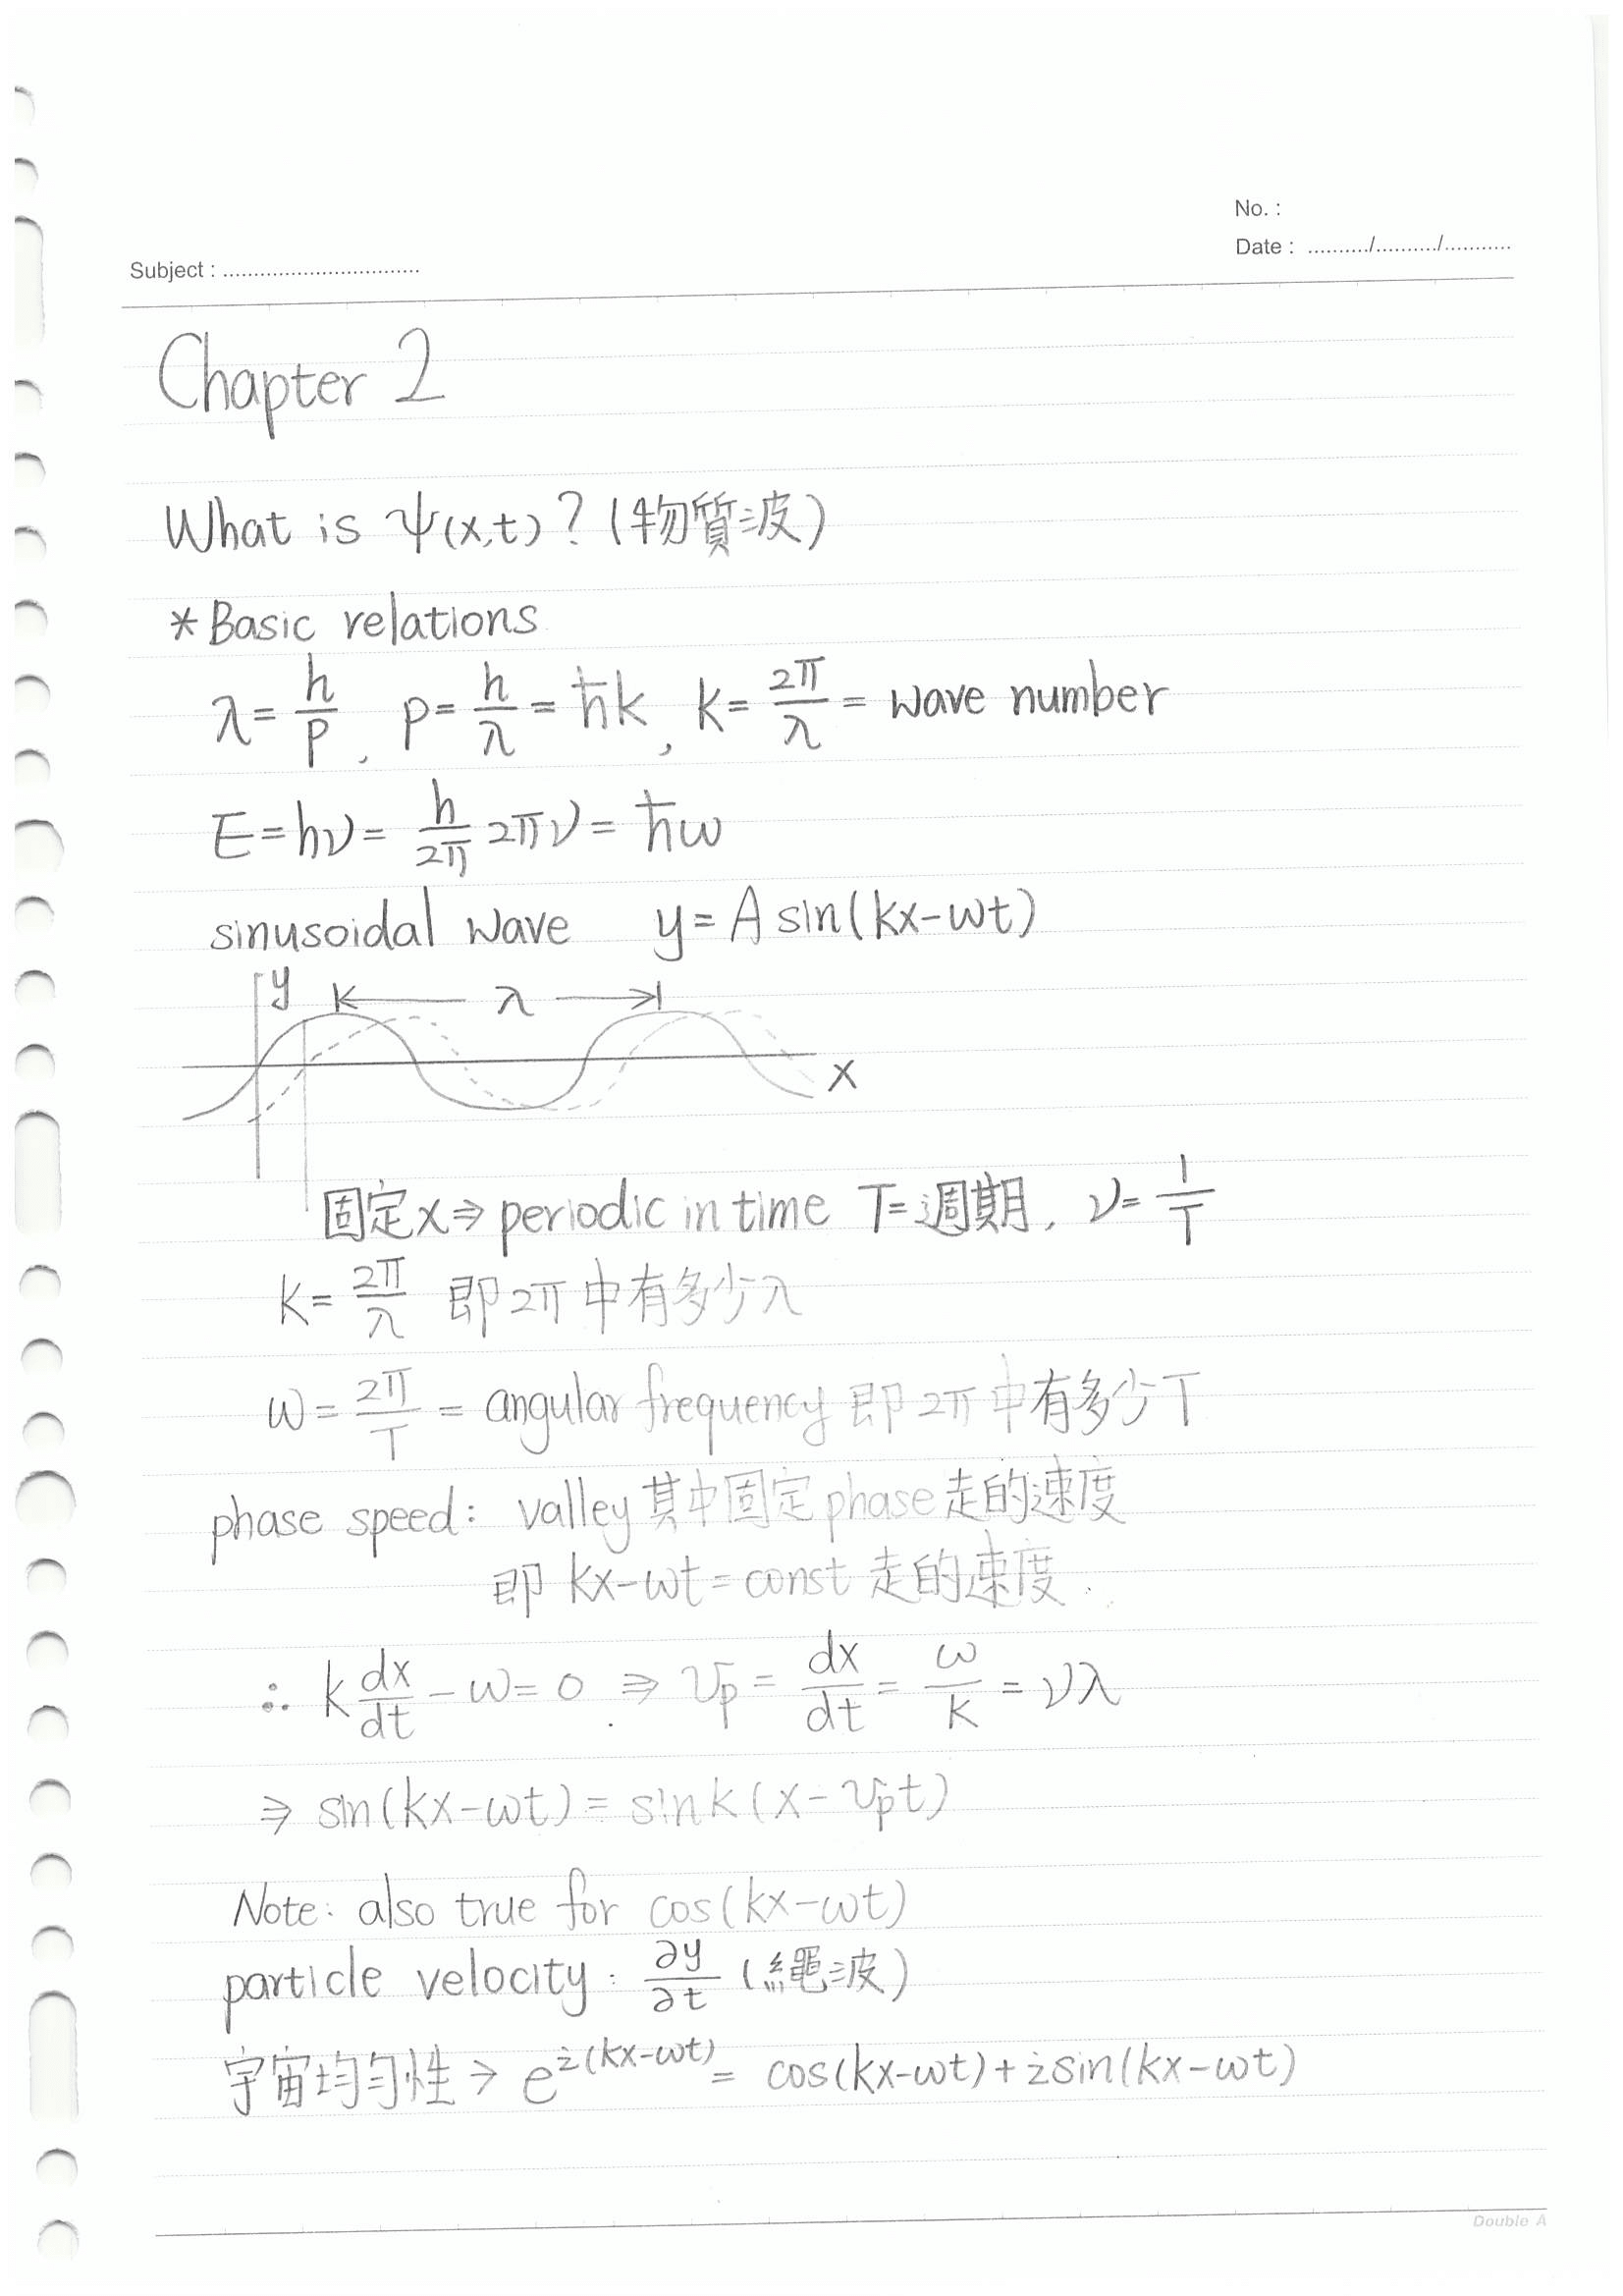 No. :
Date : ........../........../...........
Subject : ................................
Chapter 2
What is ψ(x,t)? (物質波)
*Basic relations
λ = h/p , p = h/λ = ħk , k = 2π/λ = wave number
E = hν = h/2π 2πν = ħω
sinusoidal wave y = A sin(kx-ωt)
y λ
x
固定x ⇒ periodic in time T = 週期, ν = 1/T
k = 2π/λ 即 2π 中有多少λ
ω = 2π/T = angular frequency 即 2π 中有多少T
phase speed: valley 其中固定 phase 走的速度
即 kx-ωt = const 走的速度.
∴ k dx/dt - ω = 0 ⇒ vp = dx/dt = ω/k = νλ
⇒ sin(kx-ωt) = sin k(x-vpt)
Note: also true for cos(kx-ωt)
particle velocity: ∂y/∂t (繩波)
宇宙均勻性 → e^i(kx-ωt) = cos(kx-ωt)+isin(kx-ωt)
Double A